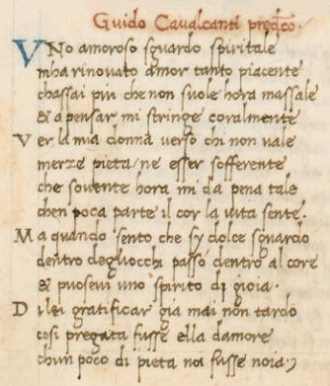 Guido Cavalcanti prede͞co.
VNo amoroso sguardo spiritale
mha rinovato amor tanto piacente
chassai piu che non suole hora massale
& a pensar mi stringe coralmente
Ver la mia donna verso chi non vale
merze pieta / ne esser sofferente
che sovente hora mi da pena tale
chen poca parte il cor la vita sente.
Ma quando sento che sy dolce sguardo
dentro degliocchi passo dentro al core
& posevi uno spirito di gioia.
Di lei gratificar gia mai non tardo
cosi pregata fusse ella damore
chun poco di pieta noi fusse noia